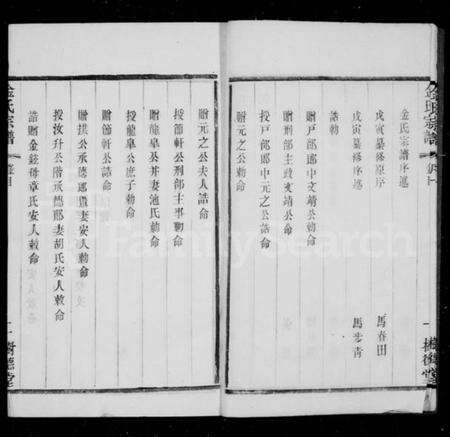 金氏宗譜序述
戊寅纂修原序
馬春田
戊寅纂修序述
馬步青
誥勅
贈戶部郎中文靖公勅命
贈刑部主政文靖公命
授戶部郎中元之公誥命
贈元之公勅命
贈元之公夫人誥命
授節軒公刑部主事勅命
贈龍臯公并妻池氏勅命
授龍臯公庶子勅命
贈節軒公誥命
贈拱公承德郎暨妻安人勅命
授汝升公階承德郎妻胡氏安人敕命
誥贈金鉉母章氏安人敕命
金氏宗譜
總目
二
樹德堂
FamilySearch